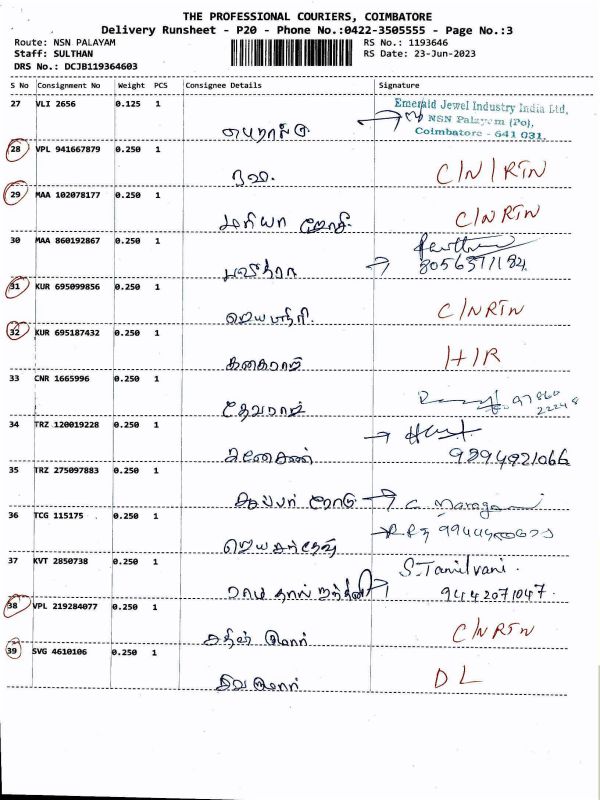 THE PROFESSIONAL COURIERS, COIMBATORE
Delivery Runsheet - P20 - Phone No.:0422-3505555 - Page No.:3
Route: NSN PALAYAM RS No.: 1193646
Staff: SULTHAN RS Date: 23-Jun-2023
DRS No.: DCJB119364603
S No Consignment No Weight PCS Consignee Details Signature
27 VLI 2656 0.125 1
Emerald Jewel Industry India Ltd,
NSN Palayam (Po),
Coimbatore - 641 031.
28 VPL 941667879 0.250 1
C/N/RTN
29 MAA 102078177 0.250 1
மரியா ஜோதி C/NRTN
30 MAA 860192867 0.250 1
பவித்ரா 8056371184
31 KUR 695099856 0.250 1
ஜெயஸ்ரீ C/NRTN
32 KUR 695187432 0.250 1
கனகராஜ் H/R
33 CNR 1665996 0.250 1
தேவராஜ் 97860
22248
34 TRZ 120019228 0.250 1
கணேசன் 9894821066
35 TRZ 275097883 0.250 1
36 TCG 115175 0.250 1
37 KVT 2850738 0.250 1
S.Tamilvani.
9442071047.
38 VPL 219284077 0.250 1
சதீஸ் குமார் C/NRTN
39 SVG 4610106 0.250 1
சிவகுமார் DL